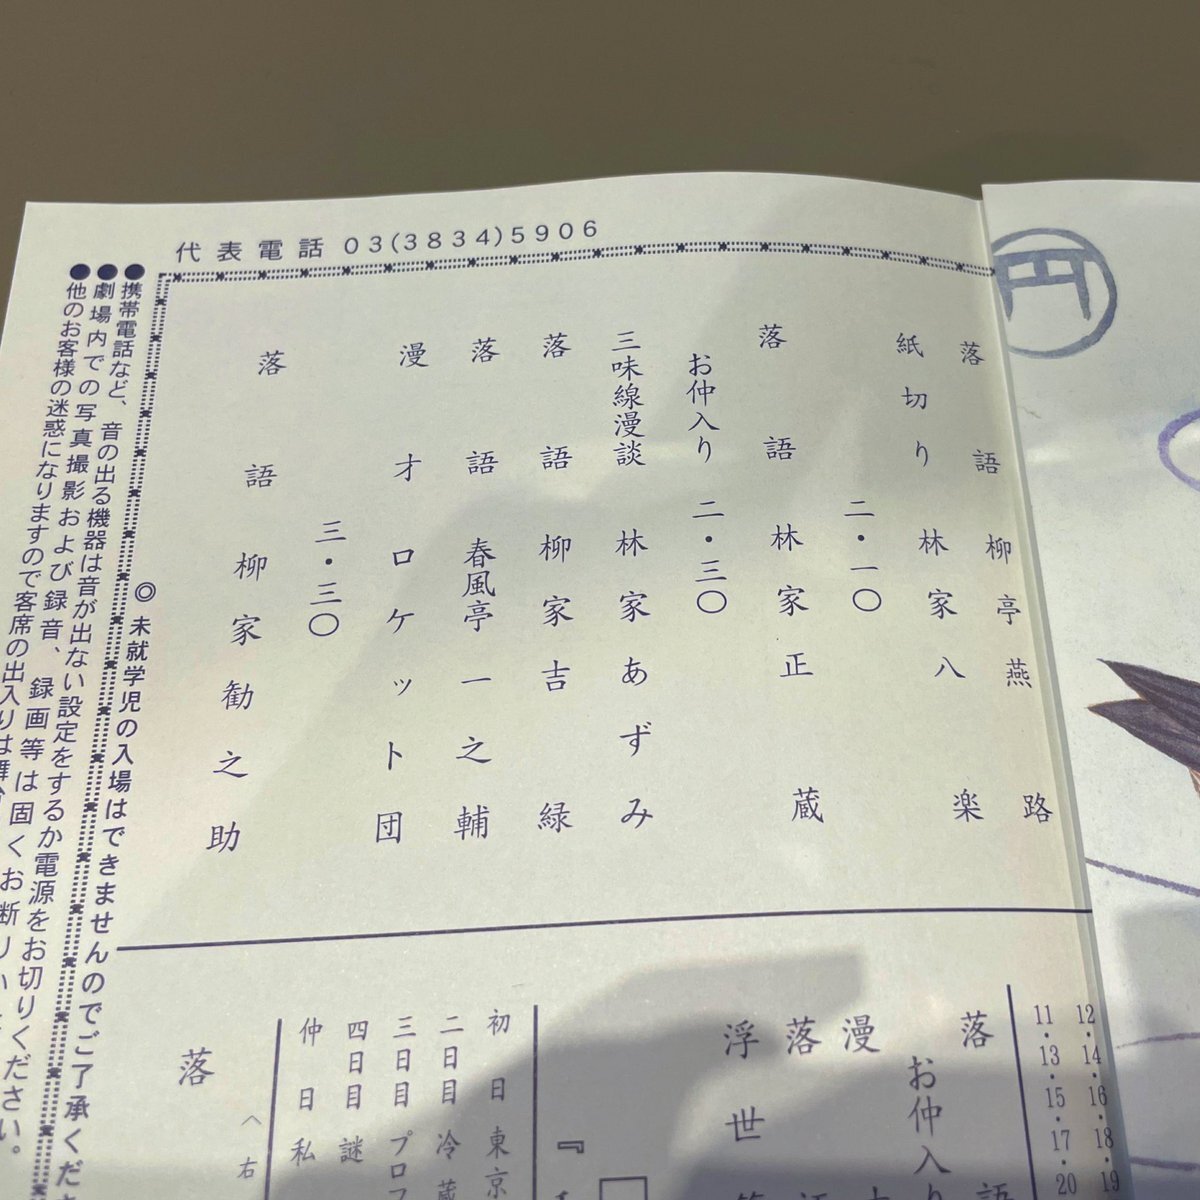 代表電話 03(3834)5906
円
落語 柳亭燕路
紙切り 林家八楽
二・一〇
落語 林家正蔵
二・三〇
お仲入り
三味線漫談 林家あずみ
落語 柳家吉緑
落語 春風亭一之輔
漫才 ロケット団
三・三〇
落語 柳家勧之助
◎未就学児の入場はできませんのでご了承くださ
●携帯電話など、音の出る機器は音が出ない設定をするか電源をお切りください。
●劇場内での写真撮影および録音、録画等は固くお断りいた
●他のお客様の迷惑になりますので客席の出入りは舞
12・14・16・18・19
11・13・15・17・20
落語
お仲入り
漫才
落語
浮世
『
初日 東京
二日目 冷蔵
三日目 プロフ
四日目 謎
仲日 私
落
へ右